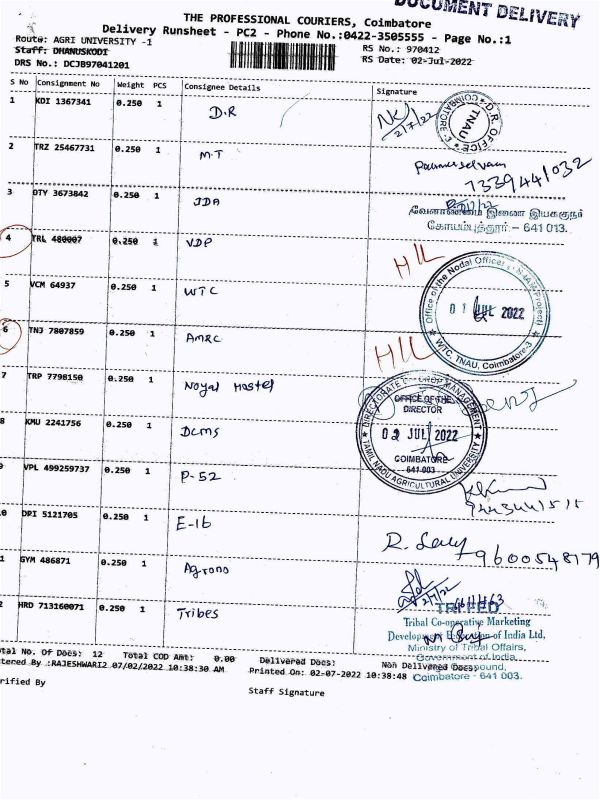 DOCUMENT DELIVERY
THE PROFESSIONAL COURIERS, Coimbatore
Delivery Runsheet - PC2 - Phone No.:0422-3505555 - Page No.:1
Route: AGRI UNIVERSITY -1
RS No.: 970412
Staff: DHANUSKODI
RS Date: 02-Jul-2022
DRS No.: DCJB97041201
S No Consignment No Weight PCS Consignee Details Signature
1 KDI 1367341 0.250 1 D.R 2/7/22
D.R. OFFICE TNAU COIMBATORE
2 TRZ 25467731 0.250 1 M.T
7339441032
3 DTY 3673842 0.250 1 JDA
வேளாண்மை இணை இயக்குநர்
கோயம்புத்தூர் - 641 013.
4 TRL 480007 0.250 1 VDP
Office of the Nodal Officer
01 JUL 2022
WTC, TNAU, Coimbatore-3
5 VCM 64937 0.250 1 WTC
6 TNJ 7807859 0.250 1 AMRC
7 TRP 7798150 0.250 1 Noyal Hostel
DIRECTORATE OF CROP MANAGEMENT
OFFICE OF THE
DIRECTOR
02 JUL 2022
COIMBATORE
641 003
TAMIL NADU AGRICULTURAL UNIVERSITY
8 KMU 2241756 0.250 1 DCMS
9 VPL 499259737 0.250 1 P-52
9443441515
0 DPI 5121705 0.250 1 E-16
9600548179
1 GYM 486871 0.250 1 Agrono
2/7/22
2 HRD 713160071 0.250 1 Tribes
TRIFED
Tribal Co-operative Marketing
Development of India Ltd,
Ministry of Tribal Affairs,
Government of India
Coimbatore - 641 003.
otal No. Of Docs: 12 Total COD Amt: 0.00 Delivered Docs: Non Delivered Docs:
tered By :RAJESHWARI2 07/02/2022 10:38:30 AM Printed On: 02-07-2022 10:38:48
rified By
Staff Signature